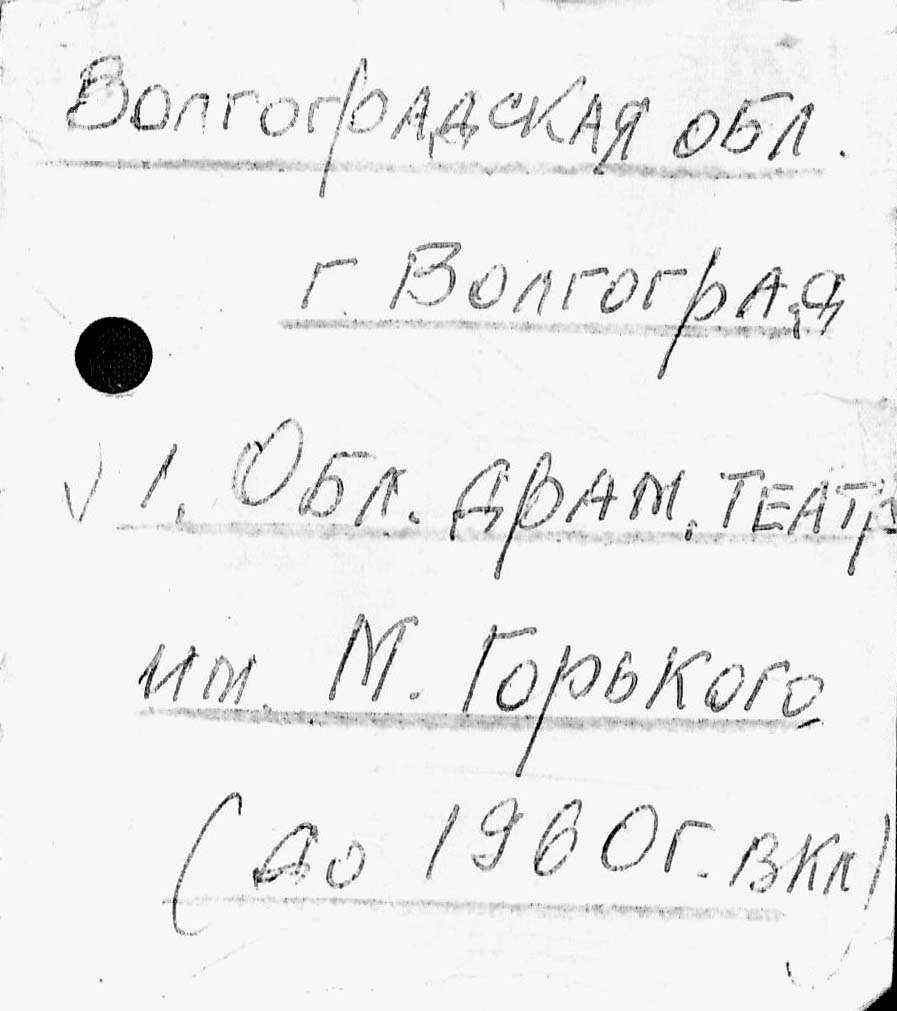 Волгоградская обл.
г. Волгоград
√ 1. Обл. драм. театр
им. М. Горького
(до 1960г. вкл)